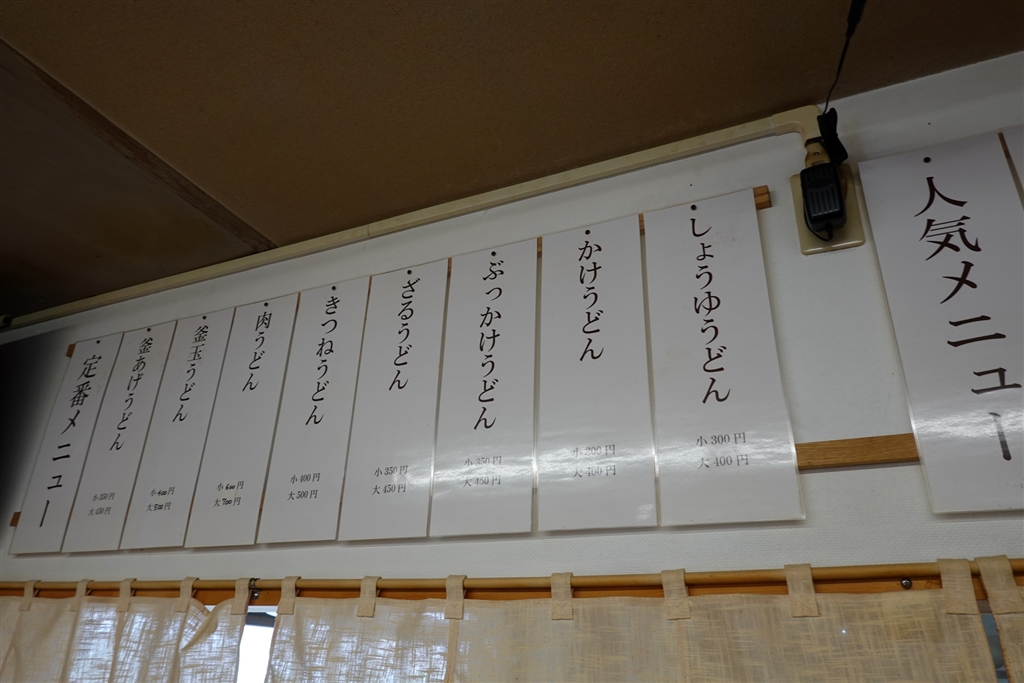 ・人気メニュー
・しょうゆうどん
小 300 円
大 400 円
・かけうどん
小 300 円
大 400 円
・ぶっかけうどん
小 350 円
大 450 円
・ざるうどん
小 350 円
大 450 円
・きつねうどん
小 400 円
大 500 円
・肉うどん
小 600 円
大 700 円
・釜玉うどん
小 400 円
大 500 円
・釜あげうどん
小 350 円
大 450 円
・定番メニュー